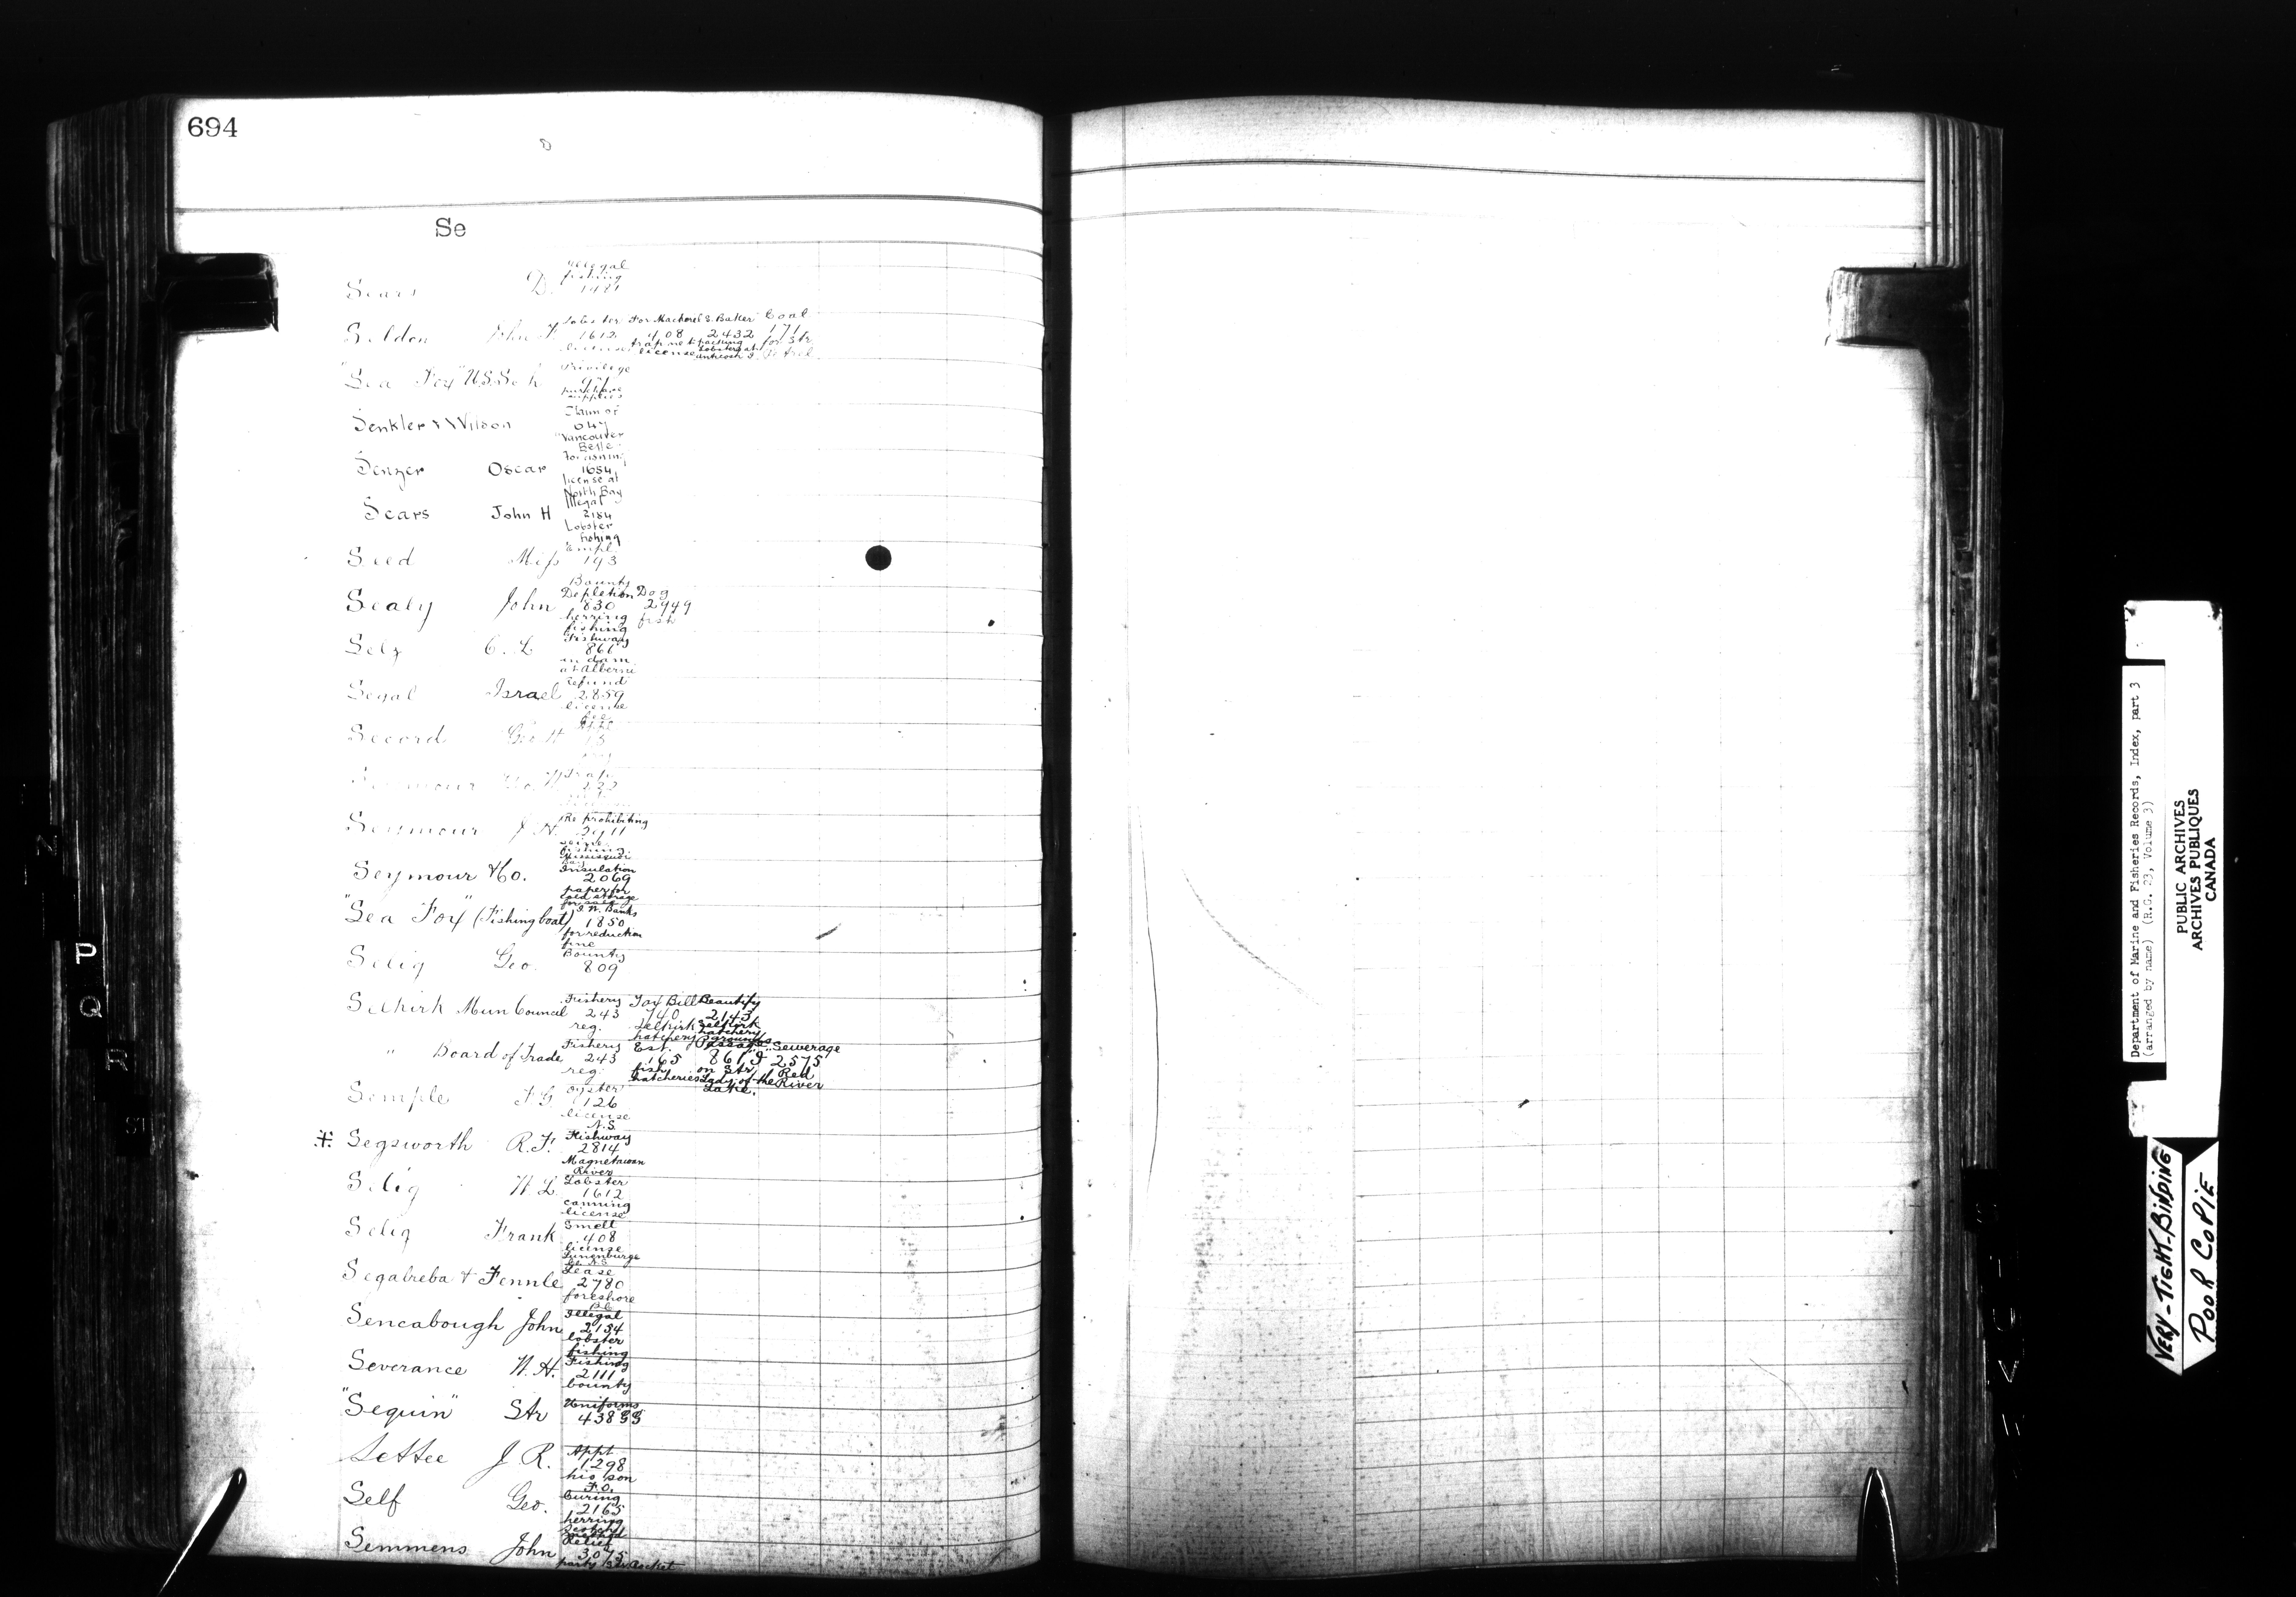 694
Se
Illegal
fishing
Sears D. 1481
Lobster For Mackerel S. Baker Coal
Seldon John F. 1612 408 2432 171
license trap net packing for Str
license Lobsters at Petrel
Anticosti I.
Privilege
"Sea Fox" U.S. Sch
purchase
supplies
Claim of
Senkler & Wilson 647
"Vancouver
Belle"
For fishing
Senzer Oscar 1684
license at
North Bay
Illegal
Sears John H 2184
Lobster
fishing
Empl.
Seed Miss 193
Bounty
Depletion Dog
Sealy John 830 2949
herring fish
fishing
Fishway
Selz C. L. 866
in dam
at Alberni
Refund
Segal Israel 2859
license
fee
Secord Geo H
Trap
Seymour 232
Re prohibiting
Seymour J. H. 2911
seine
fishing
Missisquoi
Bay
Insulation
Seymour & Co. 2069
paper for
cold storage
for sale
J. N. Banks
"Sea Fox" (Fishing boat) 1850
for reduction
fine
Bounty
Selig Geo. 809
Fishery Tax Bill Beautify
Selkirk Mun Council 243 740 2143
reg. Selkirk Selkirk
hatchery hatchery
grounds
Fishery Est. Passage Sewerage
" Board of Trade 243 165 861 2575
reg. fish on Str Red
hatcheries Lady of the River
Lake.
Oyster
Semple F G 126
license
N.S.
Fishway
Segsworth R. F. 2814
Magnetawan
River
Lobster
Selig W L 1612
canning
license
Smelt
Selig Frank 408
license
Lunenburge
Co N.S.
Lease
Segalreba & Fennle 2780
foreshore
B.C.
Illegal
Sencabough John 2154
lobster
fishing
Fishing
Severance W. H. 2111
bounty
Uniforms
"Seguin" Str 438
Appt
Settee J. R. 1298
his son
F.O.
Curing
Self Geo. 2165
herring
Scotch
method
Relief
Semmens John 3075
party Str Rocket
Department of Marine and Fisheries Records, Index, part 3
(arranged by name) (R.G. 23, Volume 3)
PUBLIC ARCHIVES
ARCHIVES PUBLIQUES
CANADA
VERY-TIGHT-BINDING
POOR COPIE
P
Q
R